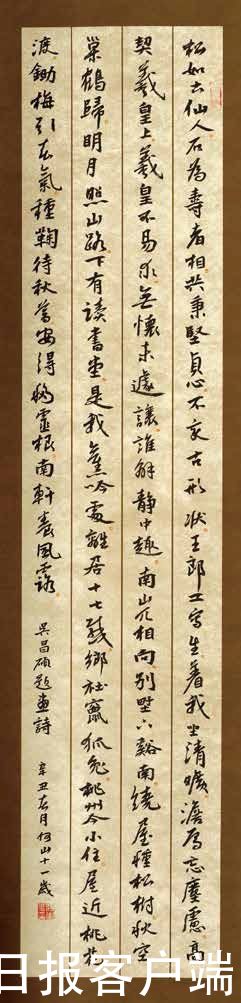 松如古仙人石為壽者相共秉堅貞心不哀古形狀王郎工寫生着我坐清曠澹焉忘塵慮高
契羲皇上羲皇不易求無懷未遽讓誰解靜中趣南山兀相向別墅六谿南繞屋種松樹秋空
巢鶴歸明月照山路下有读書堂是我舊吟處離居十七載鄉社竄狐兔桃州今小住屋近桃花
渡鋤梅引春氣種鞠待秋暮安得移靈根南軒養風露
吳昌碩題畫詩 辛丑春月何山十一歲
日报客户端